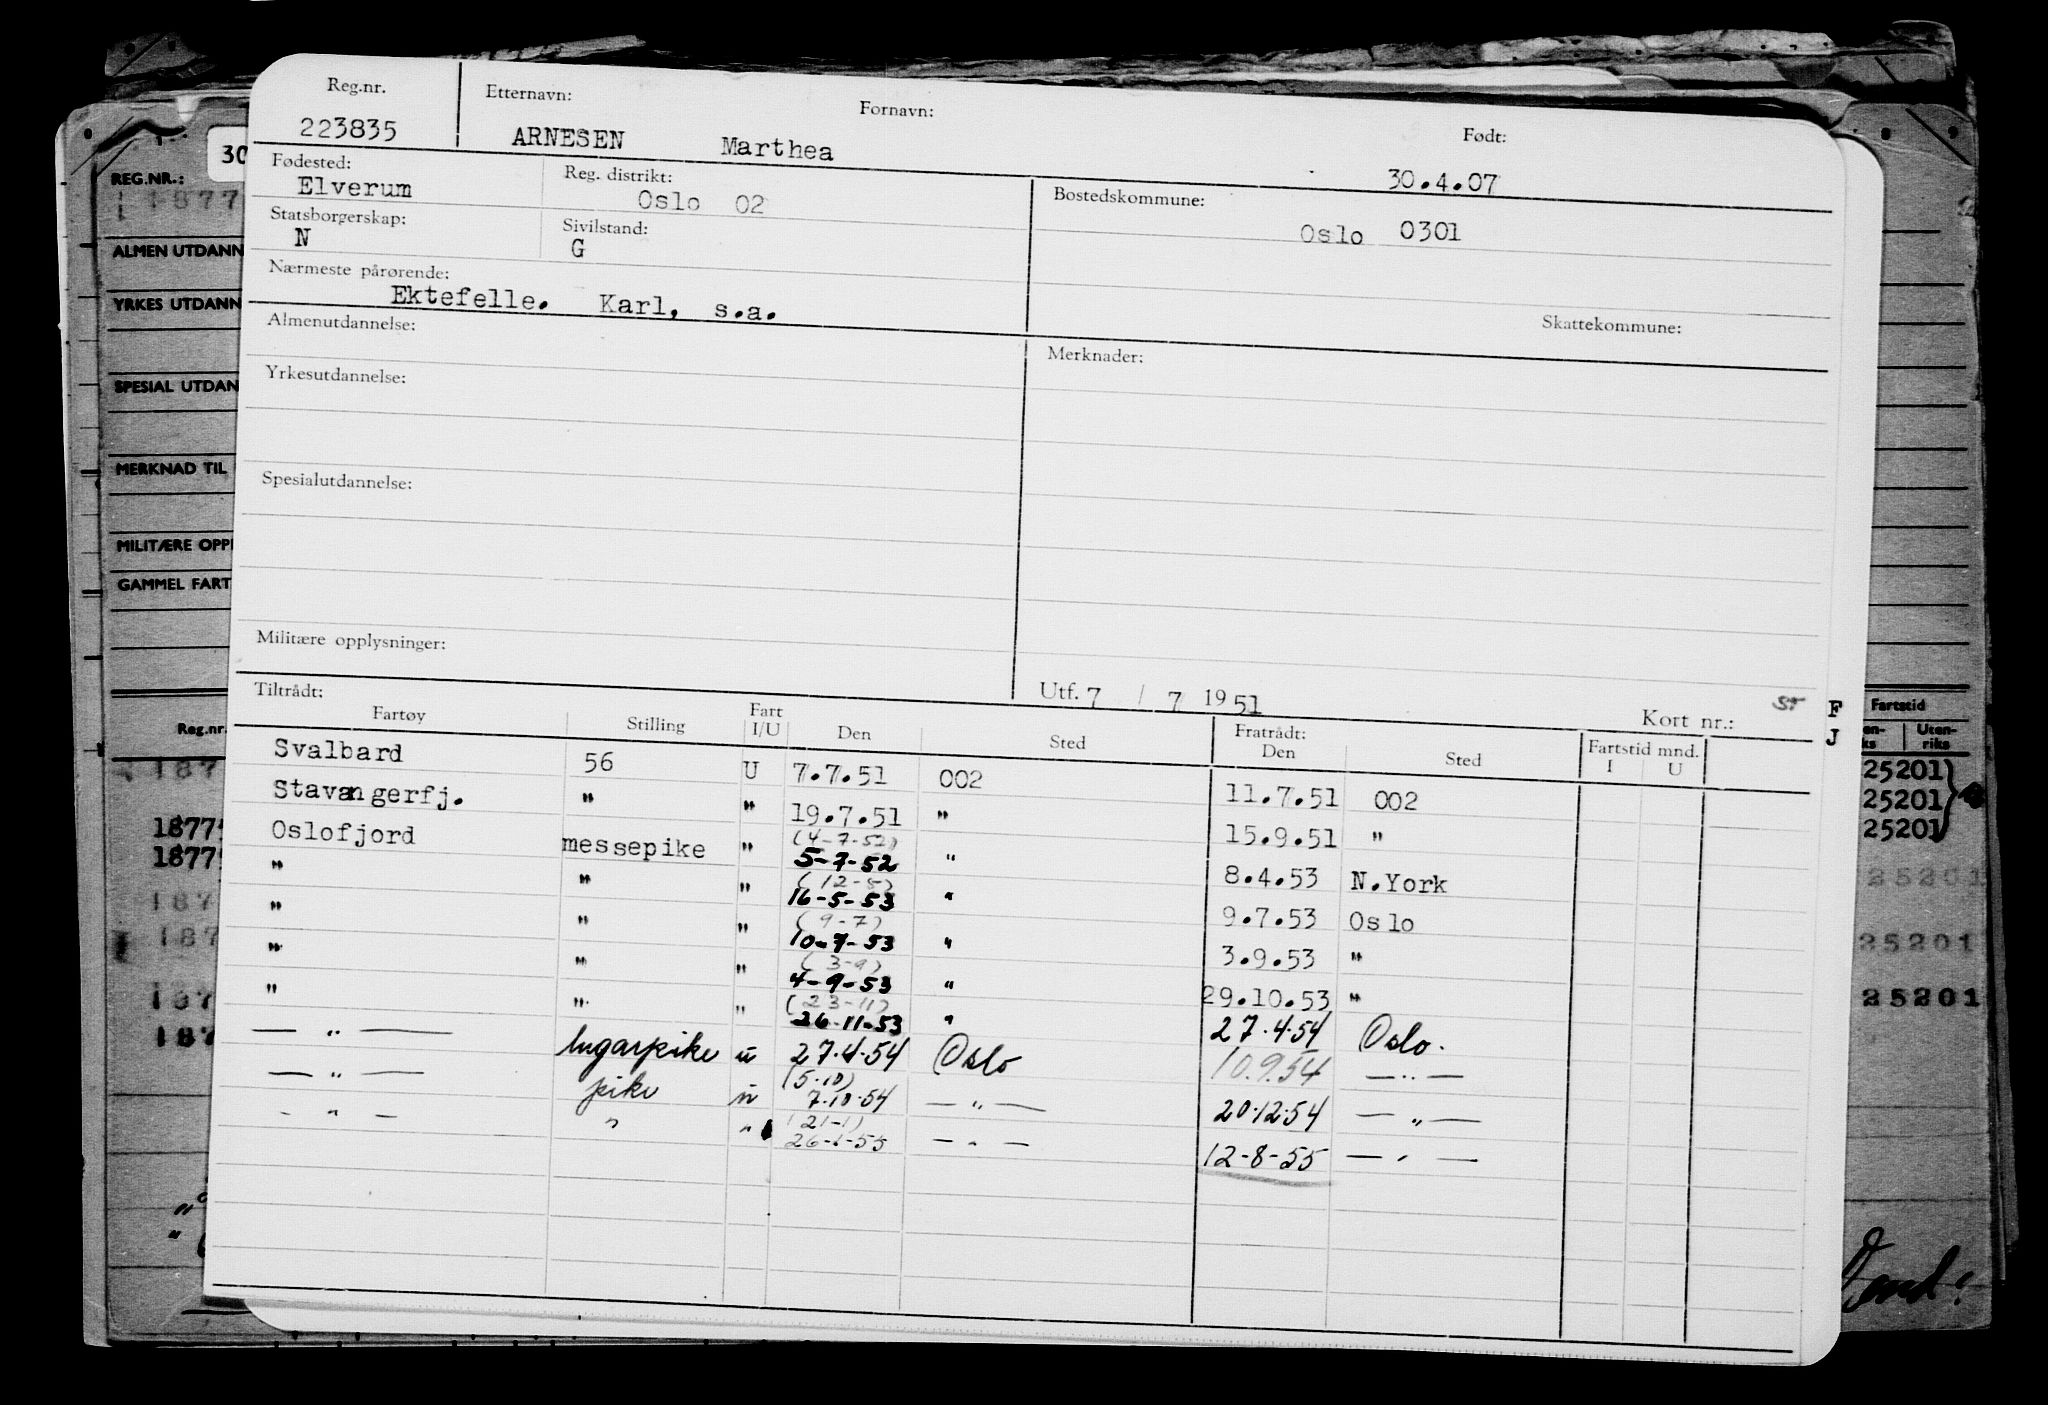 Reg.nr. Etternavn: Fornavn: Født:
223835 ARNESEN Marthea 30.4.07
Fødested: Reg. distrikt: Bostedskommune:
Elverum Oslo 02 Oslo 0301
Statsborgerskap: Sivilstand:
N G
Nærmeste pårørende:
Ektefelle. Karl, s.a.
Skattekommune:
Almenutdannelse: Merknader:
Yrkesutdannelse:
Spesialutdannelse:
Militære opplysninger:
Utf. 7 / 7 1951 Kort nr.: F
J
Tiltrådt: Fratrådt:
Fartøy Stilling Fart I/U Den Sted Den Sted Fartstid mnd. I U
Svalbard 56 U 7.7.51 002 11.7.51 002
Stavangerfj. " " 19.7.51 " 15.9.51 "
(4-7-52)
Oslofjord messepike " 5-7-52 " 8.4.53 N.York
(12-5)
" " " 16-5-53 " 9.7.53 Oslo
(9-7)
" " " 10-7-53 " 3.9.53 "
(3-9)
" " " 4-9-53 " 29.10.53 "
(23-11)
" " " 26-11-53 " 27.4.54 Oslo.
— " — lugarpike u 27.4.54 Oslo 10.9.54 — " —
(5-10)
— " — pike u 7.10.54 — " — 20.12.54 — " —
(21-1)
- " - " " 26-1-55 — " — 12-8-55 — " —
30
REG.NR.:
1877
ALMEN UTDANN
YRKES UTDANN
SPESIAL UTDAN
MERKNAD TIL
MILITÆRE OPP
GAMMEL FART
Reg.nr.
187
1877
1877
187
187
187
187
Fartstid
Uten-
riks
25201
25201
25201
25201
25201
25201